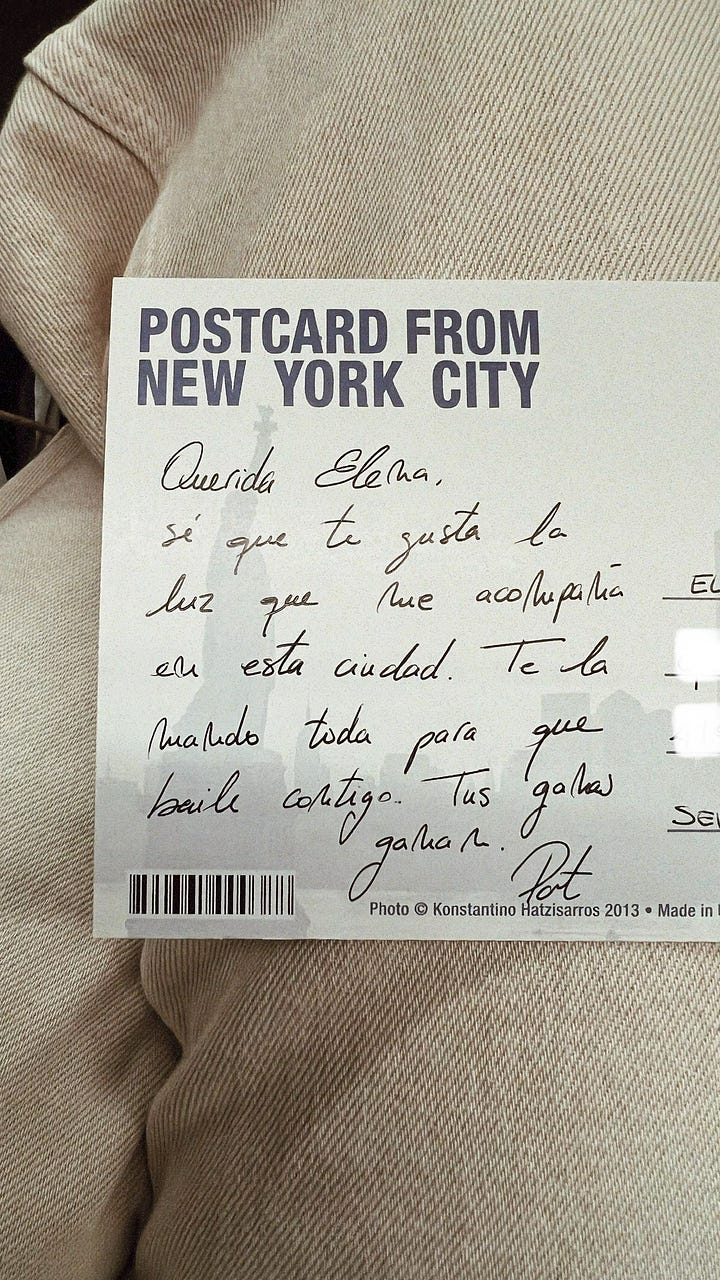 POSTCARD FROM
NEW YORK CITY
Querida Elena,
sé que te gusta la
luz que me acompaña
en esta ciudad. Te la
mando toda para que
baile contigo. Tus ganas
ganan.
Pat
Photo © Konstantino Hatzisarros 2013 • Made in
EL
SE